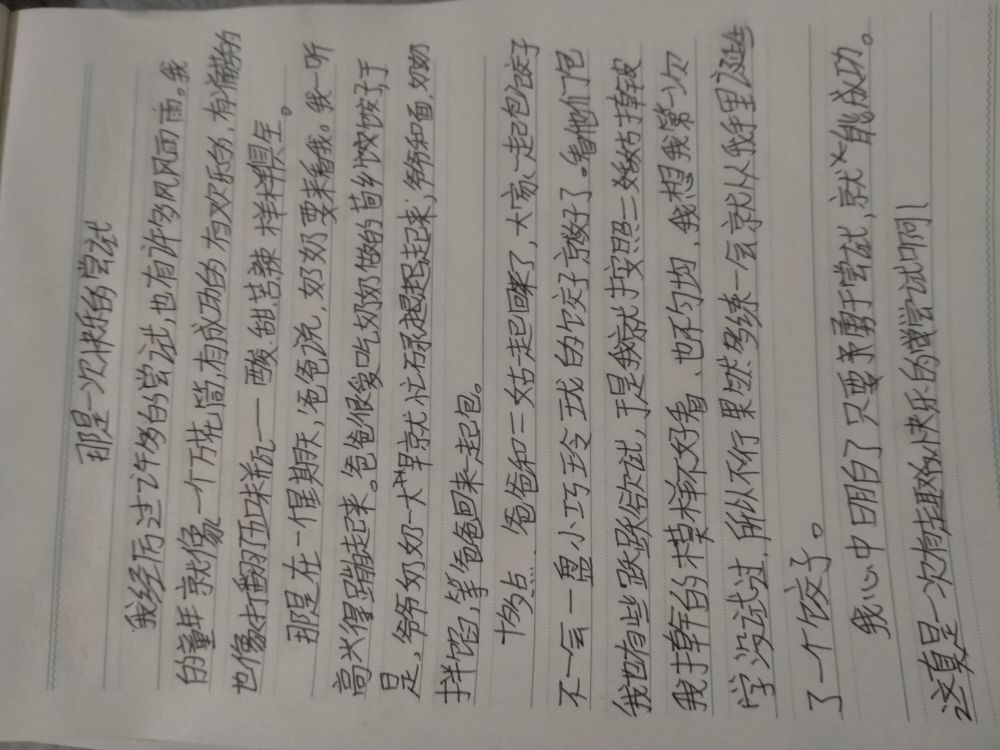 那是一次快乐的尝试
我经历过许多的尝试,也有许多风风雨雨。我
的童年就像一个万花筒,有成功的有欢乐的,有痛的
也像打翻五味瓶一一酸、甜、苦、辣样样俱全。
那是在一个星期天,爸爸说,奶奶要来看我。我一听
高兴得蹦起来。爸爸很爱吃奶奶做的茴香饺饺子,于
是,爷爷奶奶一大早就忙碌起起起来,爷爷和面,奶奶
拌馅,等爸爸回来一起包。
十多点、爸爸和二姑一起回来了,大家一起包饺子
不一会一盘小巧玲珑的饺子就好了。看他们包
我也有些跃跃欲试,于是我就按照二姑姑擀皮
我擀的模样不好看、也不匀均,我想我第一次
学没试过,所以不行果然多练一会就从我手里诞生
了一个饺子。
我心中明白了只要予勇于尝试,就才能成功。
这真是一次有趣快乐的尝试啊!